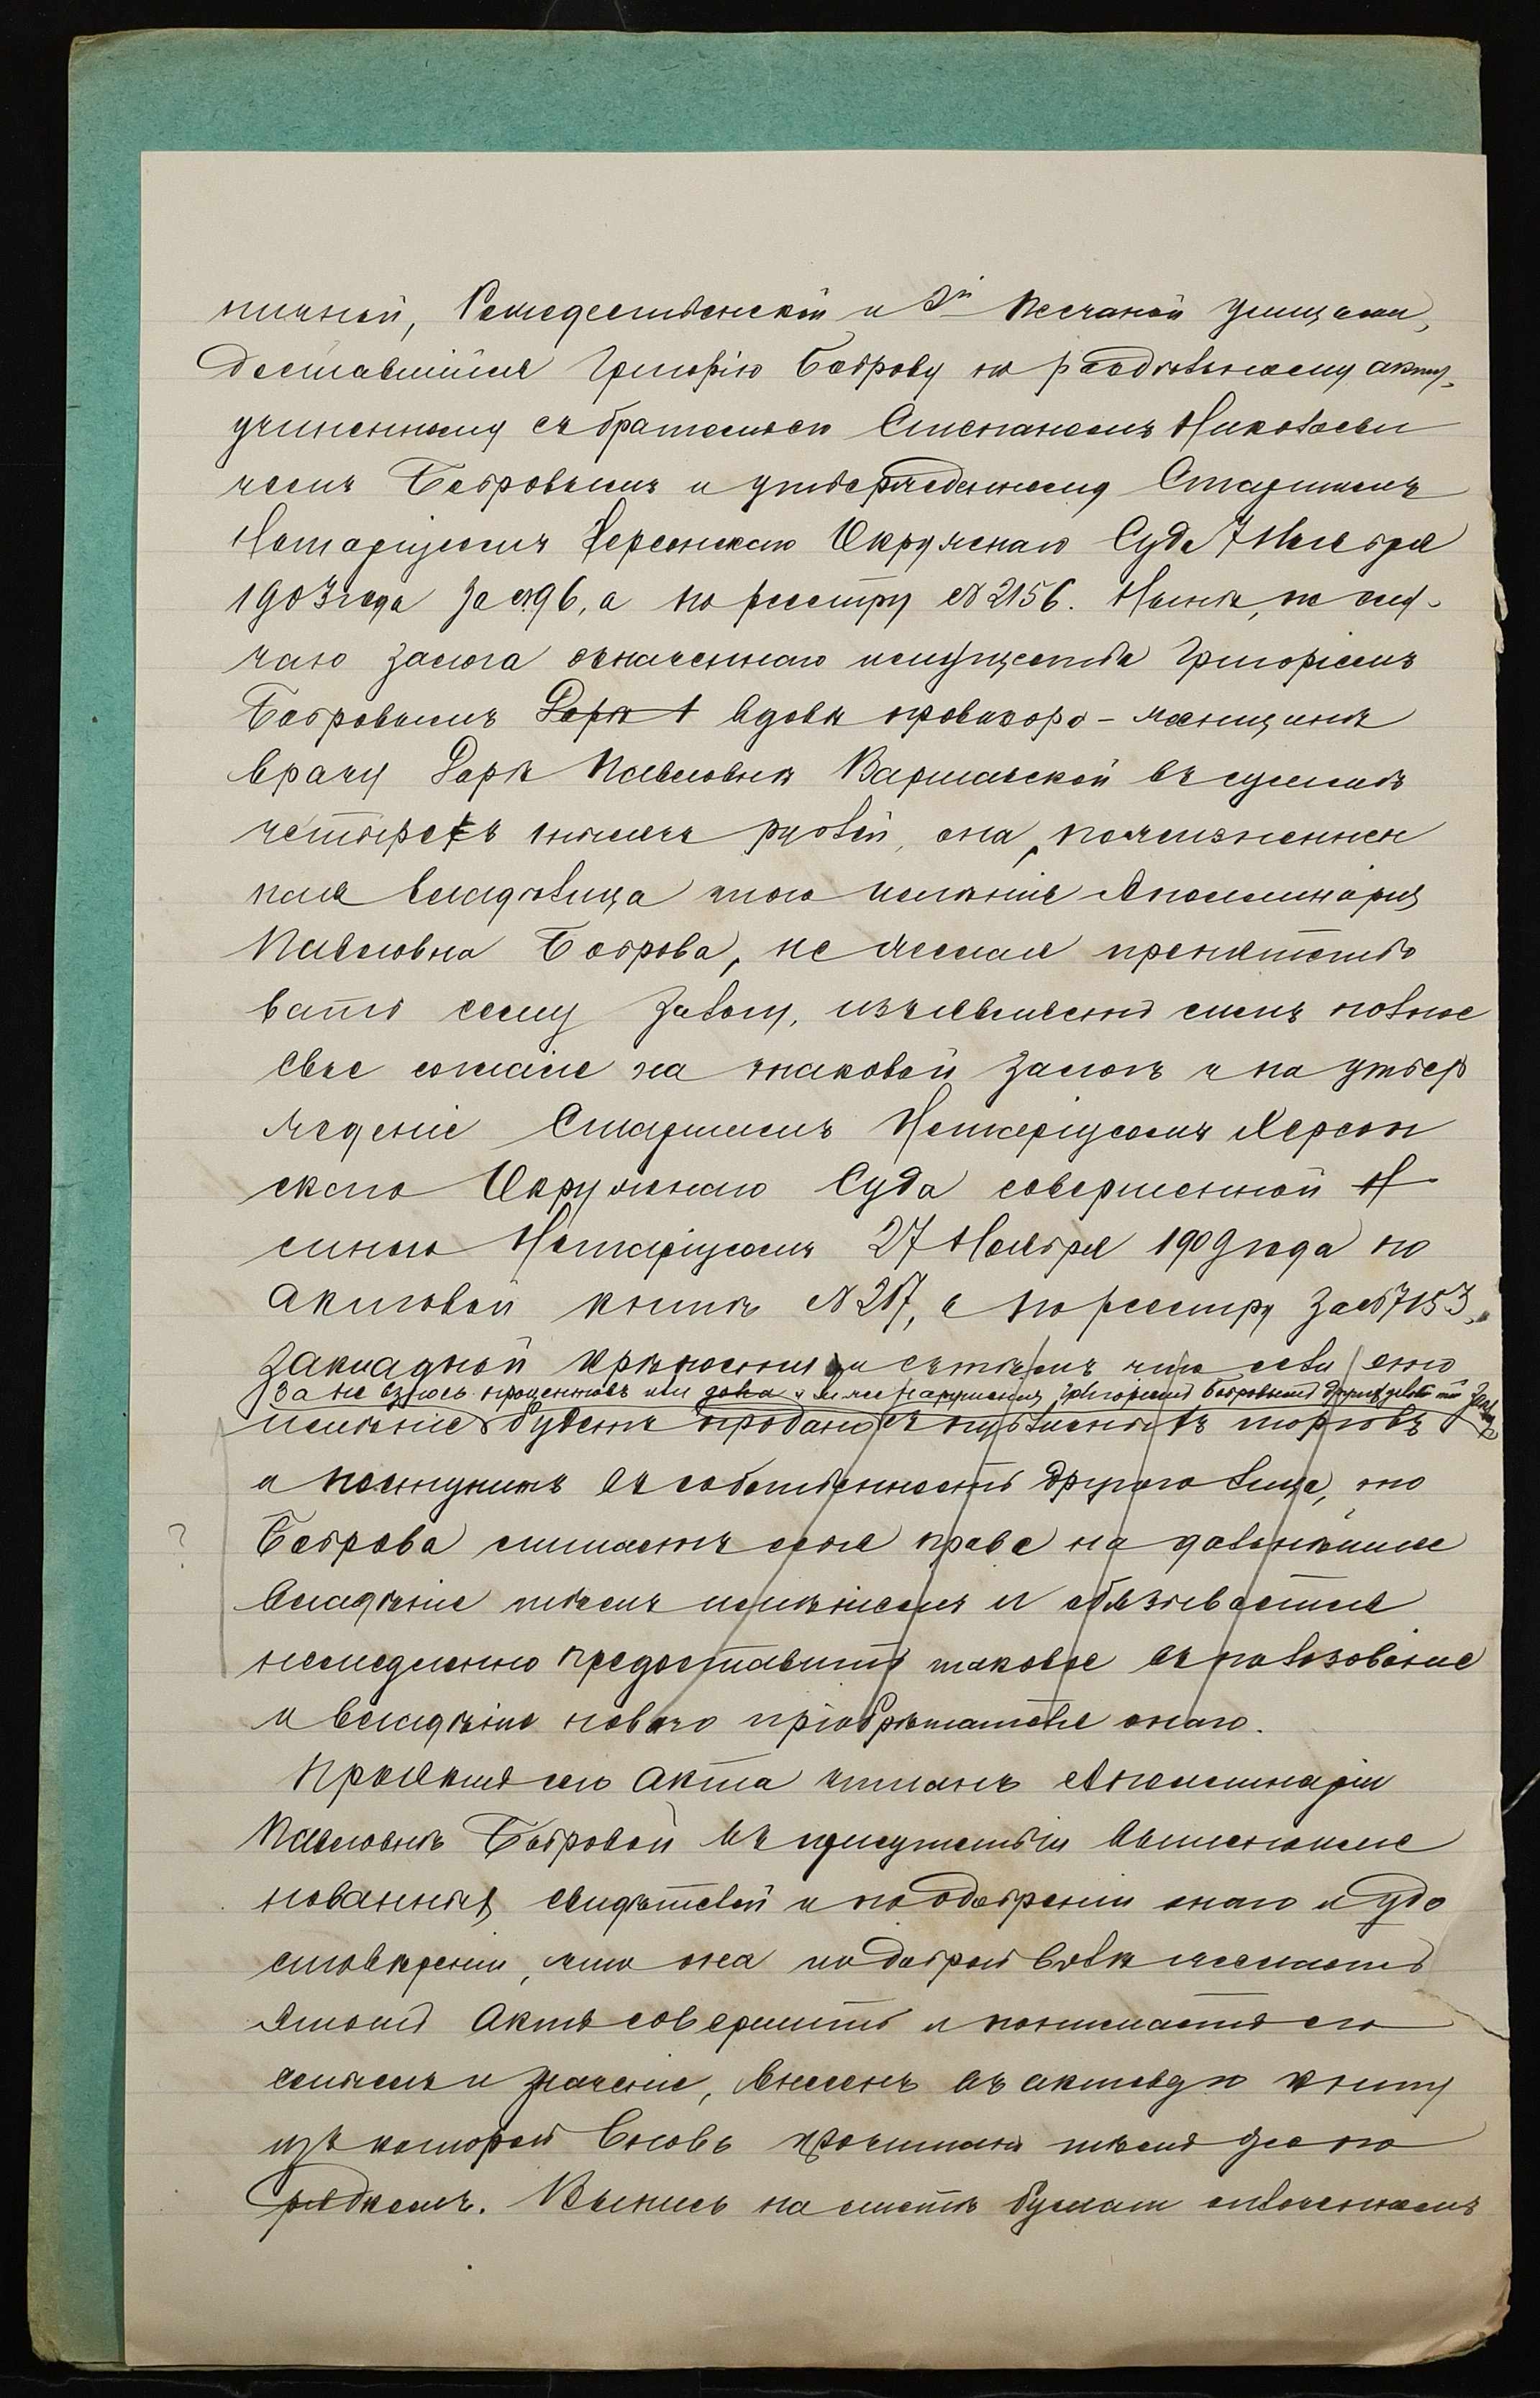 ничной, Рождественской и 2й Песчаной улицами,
доставшійся Григорію Боброву по раздѣльному акту,
учиненному съ братомъ его Степаномъ Николаеви
чемъ Бобровымъ и утвержденному Старшимъ
Нотаріусомъ Херсонскаго Окружнаго Суда 7 Ноября
1903 года за № 96, а по реестру № 2156. Нынѣ, по слу-
чаю залога означеннаго имущества Григоріемъ
Бобровымъ вдовѣ провизора - женщинѣ
врачу Дорѣ Павловнѣ Варшавской въ суммѣ
четырехъ тысячъ рублей, она, пожизненнен
ная владѣлица того имѣнія Аполлинарія
Павловна Боброва, не желая препятство
вать сему залогу, изъявляетъ симъ полное
свое согласіе на таковой залогъ и на утвер
жденіе Старшимъ Нотаріусомъ Херсон
скаго Окружнаго Суда совершенной Н
симъ Нотаріусомъ 27 Ноября 1909 года по
актовой книгѣ № 217, а по реестру за № 7153,
закладной крѣпости и съ тѣмъ что если оно
за не взносъ процентовъ или нарушенія Григоріемъ Бобровымъ
имѣніе будетъ продано съ публичныхъ торговъ
и поступитъ въ собственность другого лица, то
Боброва слагаетъ себя право на дальнѣйшее
владѣніе тѣмъ имѣніемъ и обязывается
немедленно предоставить таковое въ пользованіе
и владѣніе новаго пріобрѣтателя онаго.
Проектъ сего акта читанъ Аполлинаріи
Павловнѣ Бобровой въ присутствіи вышепоиме
нованныхъ свидѣтелей и по одобреніи онаго и удо
стовѣреніи, что она по доброй волѣ желаетъ
этотъ актъ совершить и понимаетъ его
смыслъ и значеніе, внесенъ въ актовую книгу
изъ которой вновь прочитанъ тѣмъ же по
рядкомъ. Выпись на листѣ бумаги